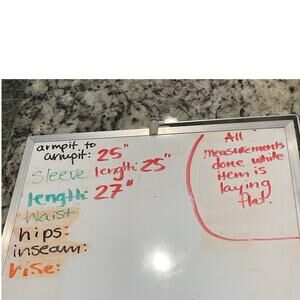 armpit to
armpit: 25"
Sleeve length: 25"
length: 27"
Waist
hips:
inseam:
rise:
All
measurements
done while
item is
laying
flat.